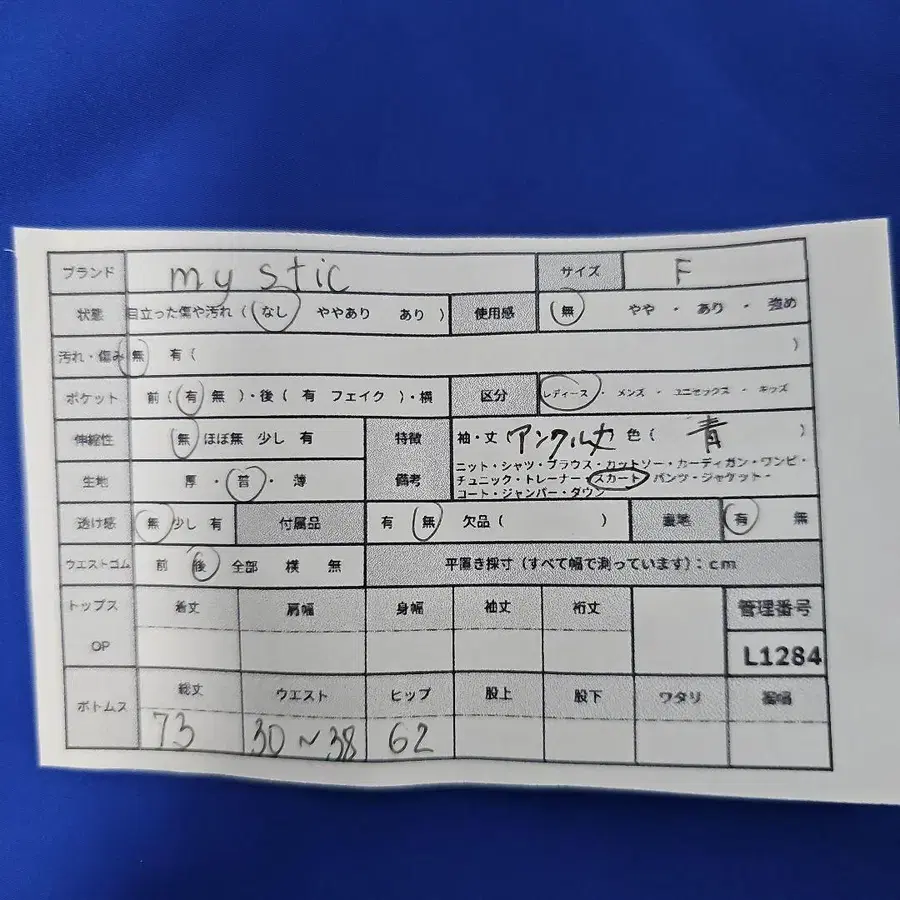 ブランド mystic サイズ F
状態 目立った傷や汚れ ( なし ややあり あり ) 使用感 無 やや ・ あり ・ 強め
汚れ・傷み 無 有 ( )
ポケット 前 ( 有 無 )・後 ( 有 フェイク )・横 区分 レディース・ メンズ・ ユニセックス・ キッズ
伸縮性 無 ほぼ無 少し 有 特徴 袖・丈 アンクル丈 色 ( 青 )
生地 厚・ ・薄 備考 ニット・シャツ・ブラウス・カットソー・カーディガン・ワンピ・
チュニック・トレーナー・スカート パンツ・ジャケット・
コート・ジャンパー・ダウン
透け感 無 少し 有 付属品 有 無 欠品 ( ) 裏地 有 無
ウエストゴム 前 後 全部 横 無 平置き採寸 (すべて幅で測っています):cm
トップス 着丈 肩幅 身幅 袖丈 裄丈 管理番号
OP L1284
ボトムス 総丈 ウエスト ヒップ 股上 股下 ワタリ 裾幅
73 30~38 62